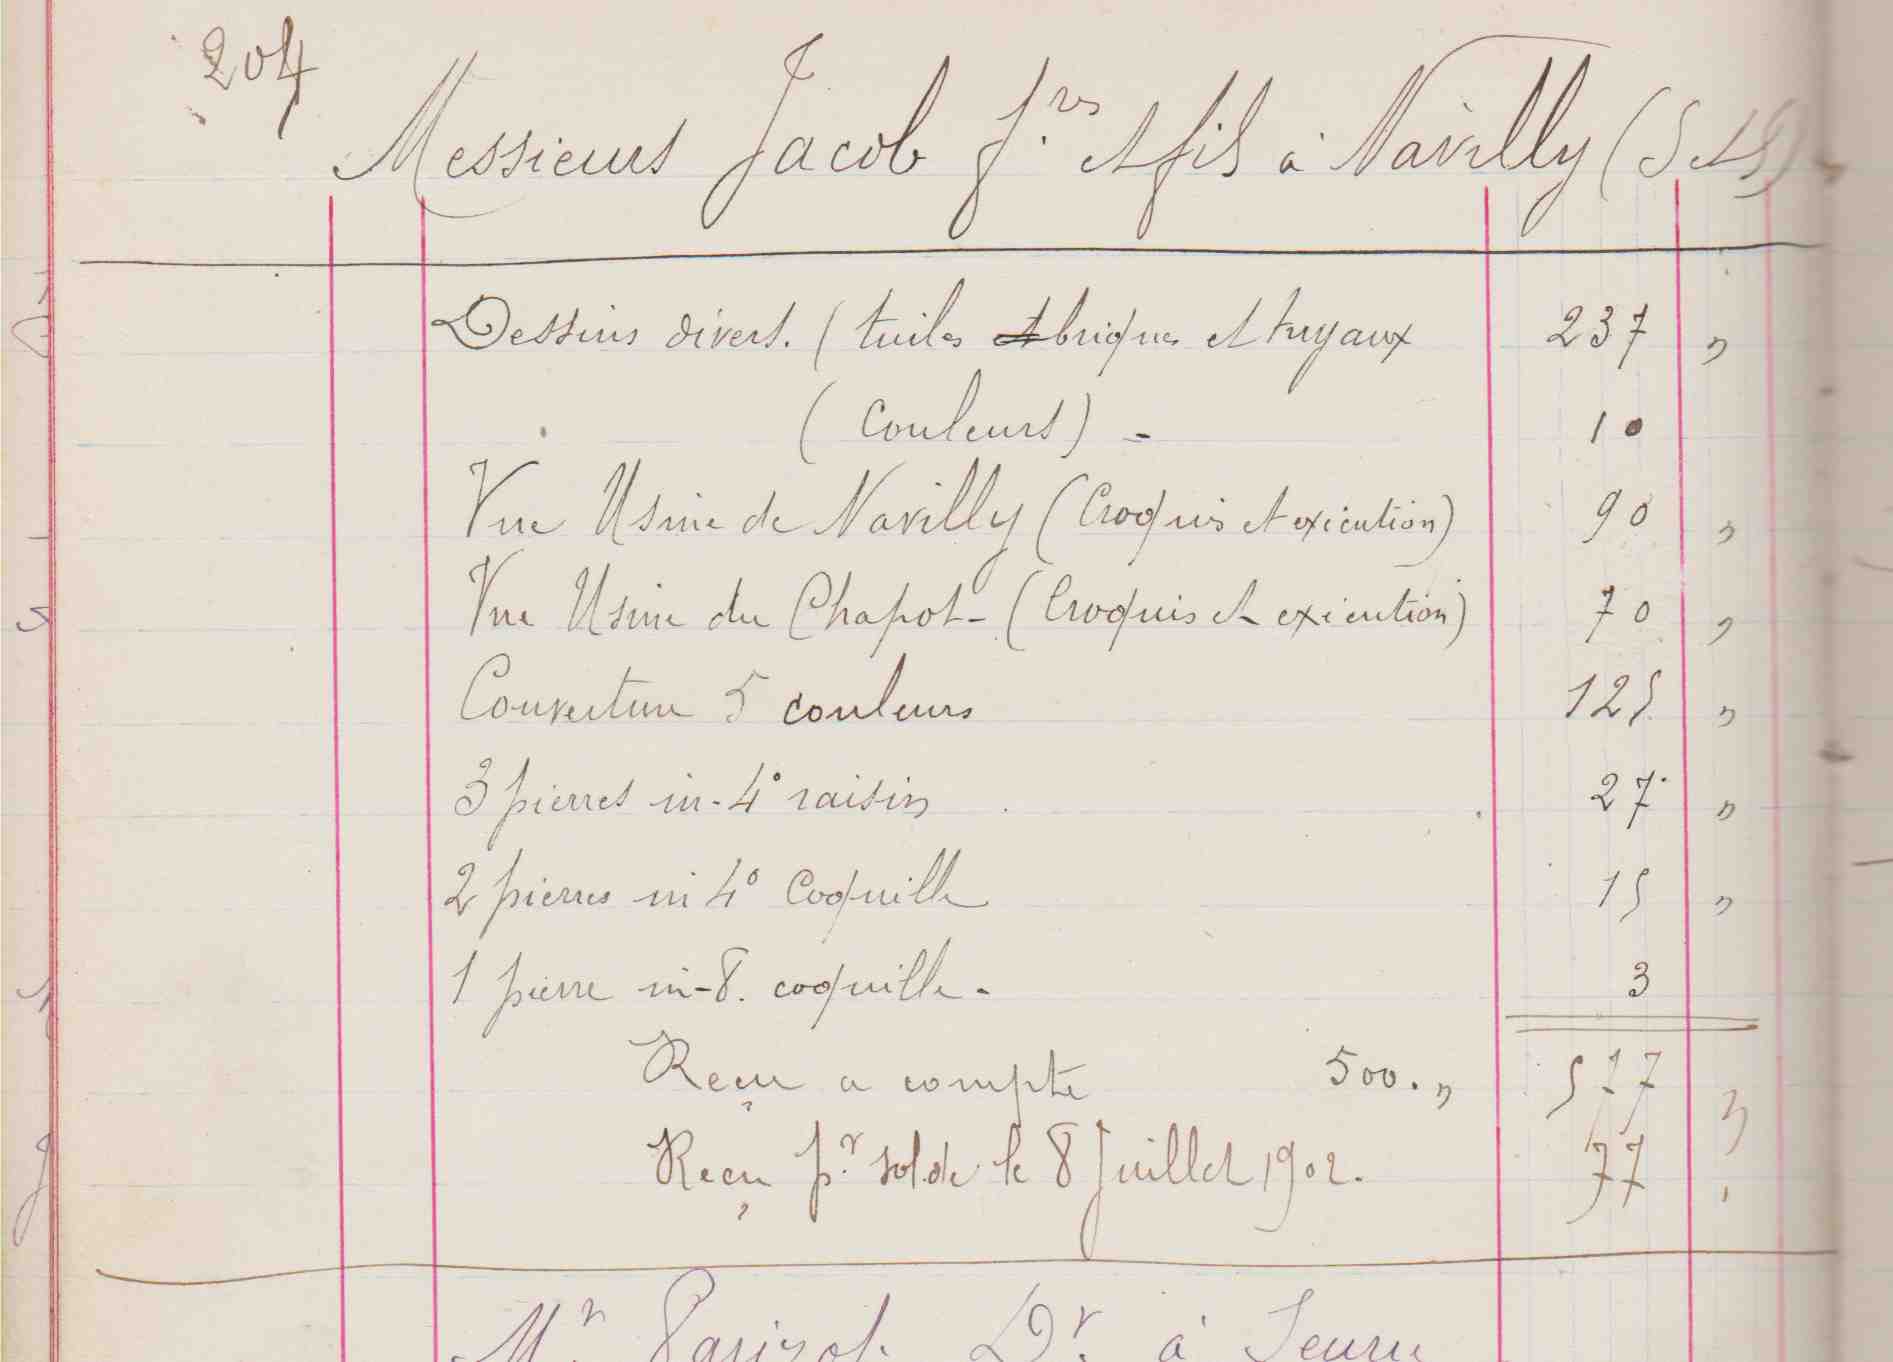 204
Messieurs Jacob f.res et fils à Navilly (S et L)
Dessins divers. (tuiles briques et tuyaux 237 "
(Couleurs) - 10
Vue Usine de Navilly (Croquis et exécution) 90 "
Vue Usine du Chapot - (Croquis et exécution) 70 "
Couverture 5 couleurs 125 "
3 pierres in-4° raisin 27 "
2 pierres in 4° Coquille 15 "
1 pierre in-8. coquille - 3
Reçu a compte 500. " 577 "
Reçu p.r solde le 8 Juillet 1902. 77
Mr Parizot. Dr. à Seurre